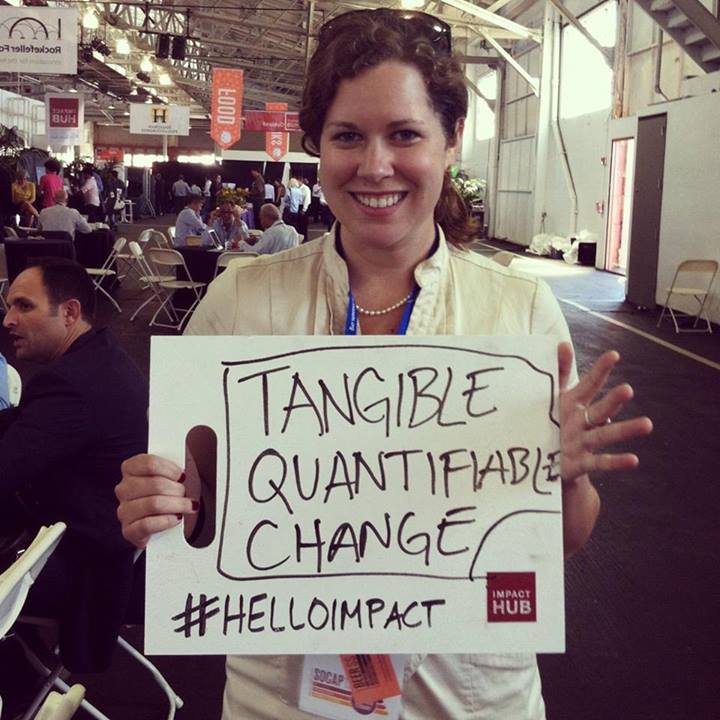 Rockefeller Fo
IMPACT
HUB
H
FOOD
TANGIBLE
QUANTIFIABLE
CHANGE
#HELLOIMPACT
IMPACT
HUB
SOCAP